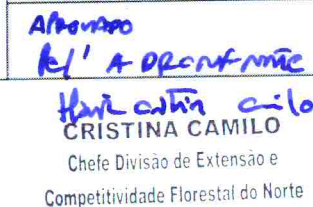 APROVADO
Pel' A DRCNF NORTE
CRISTINA CAMILO
Chefe Divisão de Extensão e
Competitividade Florestal do Norte